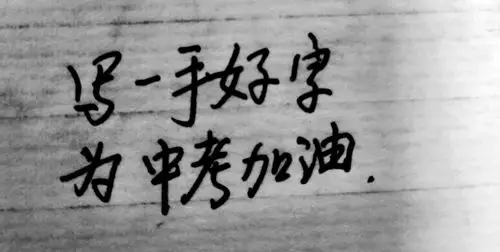 写一手好字
为中考加油.